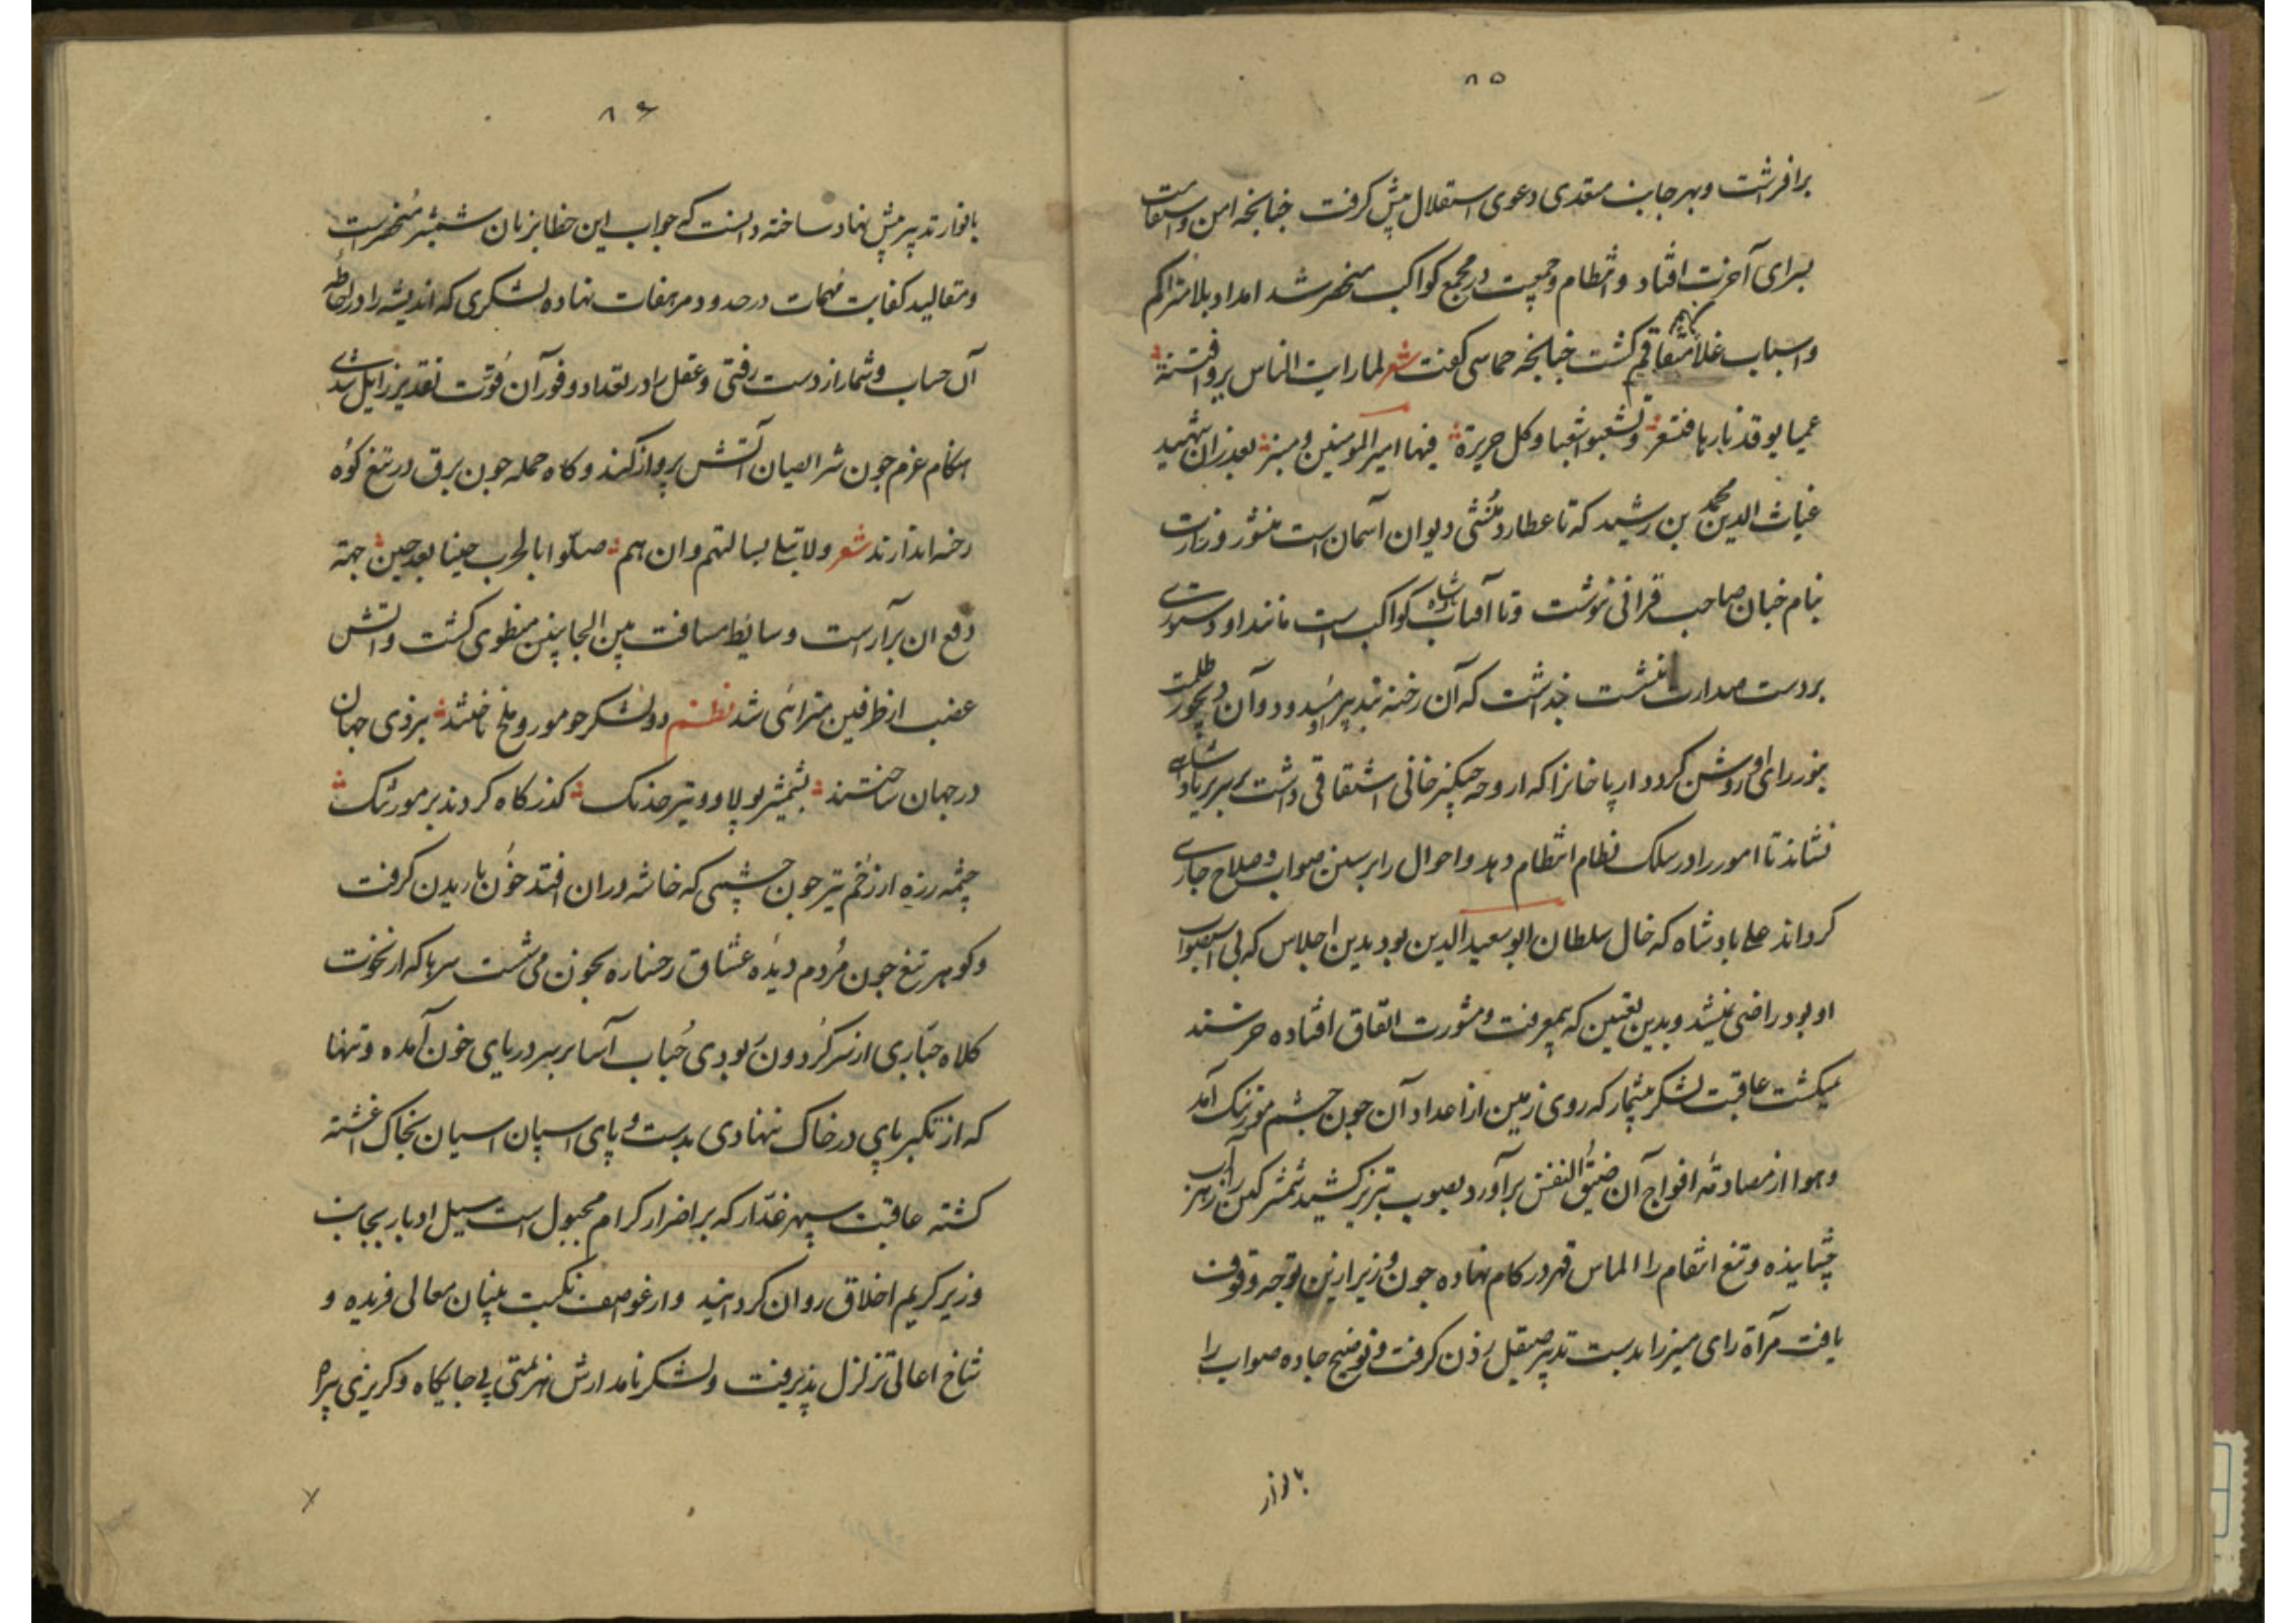 ۸۵
برافراشت و بهر جانب متعدی دعوی استقلال پیش کرفت چنانچه امن و استقامت
بسرای آخرت افتاد و انتظام و جمعیت در مجمع کواکب منحصر شد امداد بلا متراکم
و اسباب غلا متفاقم کشت چنانچه حماسی کفت شعر لما رایت الناس هروا فتنة
عمیا یوقد نارها و تسعر و تشعبوا شعبا و کل جزیرة فیها امیر المومنین و منبر بعد زان شهید
غیاث الدین محمد بن رشید که تا عطارد منشی دیوان آسمان است منشور وزارت
بنام چنان صاحب قرانی ننوشت و تا آفتاب شاه کواکب است مانند او دستوری
بر دست صدارت ننشست خواست که آن رخنه بتدبیر او مسدود و آن دیجور ظلمت
بنور رای او روشن کردد ارپا خانرا که از وحه چنکیز خانی اشتقاقی داشت بر سریر پادشاهی
نشاند تا امور را در سلک نظام انتظام دهد و احوال را بر سنن صواب و صلاح جاری
کرداند علی پادشاه که خال سلطان ابو سعید الدین بود بدین اجلاس که بی استصواب
او بود راضی نمیشد و بدین تعیین که بمعرفت و مشورت اتفاق افتاده خرسند
نمیکشت عاقبت لشکر بیشمار که روی زمین از اعداد آن چون چشم مور تنک آمد
و هوا از مصادمه افواج آن ضیق النفس برآورد بصوب تبریز کشید شمشیر کین را آب زهر
چشانیده و تیغ انتقام را الماس قهر در کام نهاده چون وزیر ازین توجه وقوف
یافت مرآة رای منیر را بدست تدبیر صیقل زدن کرفت و توضیح جاده صواب را
بانوار
۸۶
بانوار تدبیر پیش نهاد ساخته دانست که جواب این خطا بزبان شمشیر منحصر است
و مقالید کفایت مهمات در حدود مرهفات نهاده لشکری که اندیشه را در احاطه
آن حساب و شمار از دست رفتی و عقل را در تعداد وفور آن قوت تقدیر زایل شدی
هنکام عزم چون شرر ایصان آتش پرواز کنند و کاه حمله چون برق در تیغ کوه
رخنه اندازند شعر ولا تبلی بسالتهم وان هم صلوا بالحرب حینا بعد حین جهة
دفع ان برآراست و سایط مسافت بین الجانبین منطوی کشت و آتش
غضب از طرفین متراءی شد نظم دو لشکر چو مور و ملخ تاختند نبردی جهان
در جهان ساختند بشمشیر پولاد و تیر خدنک کذرکاه کردند بر مور تنک
چشمه زره از زخم تیر چون چشمی که خاشه دران افتد خون باریدن کرفت
و کوهر تیغ چون مردم دیده عشاق رخساره بخون می شست سرها که از نخوت
کلاه جباری از سر کردون ربودی حباب آسا بر سر دریای خون آمده و تنها
که از تکبر پای در خاک ننهادی بدست و پای اسپان اسپان بخاک اغشته
کشته عاقبت سپهر غدار که بر اضرار کرام مجبول است سیل ادبار بجانب
وزیر کریم اخلاق روان کردانید و از عواصف نکبت بنیان معالی فریده و
شاخ اعالی تزلزل پذیرفت و لشکر نامدارش هزیمتی بی جایکاه و کریزی بیراه